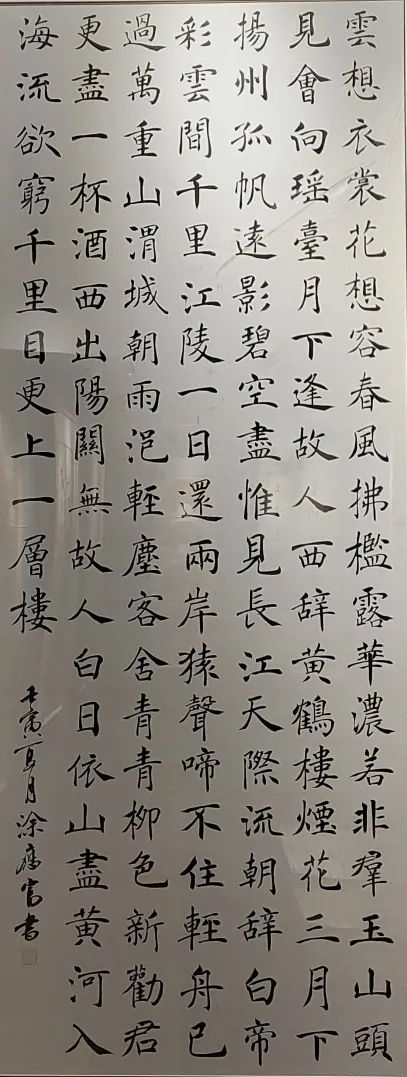 雲想衣裳花想容春風拂檻露華濃若非羣玉山頭
見會向瑶臺月下逢故人西辞黄鶴樓煙花三月下
揚州孤帆遠影碧空盡惟見長江天際流朝辞白帝
彩雲間千里江陵一日還兩岸猿聲啼不住輕舟已
過萬重山渭城朝雨浥輕塵客舍青青柳色新勸君
更盡一杯酒西出陽關無故人白日依山盡黄河入
海流欲窮千里目更上一層樓
壬寅夏月涂應富書